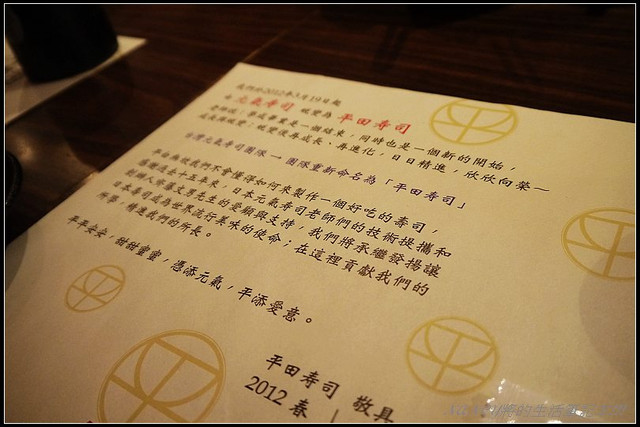 我們於2012年3月19日起
由 元氣壽司 蛻變為 平田壽司
老師說：學成畢業是一個結束，同時也是一個新的開始，
成長與蛻變；蛻變後再成長、再進化，日日精進，欣欣向榮～
台灣元氣壽司團隊 → 團隊重新命名為「平田壽司」
平田無彼我們不會懂得如何來製作一個好吃的壽司，
感謝過去十五年來，日本元氣壽司老師們的技術提攜和
創辦人 先生的愛顧與支持，我們將承繼發揚讓
日本壽司成為世界流行美味的使命；在這裡貢獻我們的
所學，精進我們的所長。
平平安安，甜甜蜜蜜，憑添元氣，平添愛意。
平田壽司 敬具
2012 春
的生活